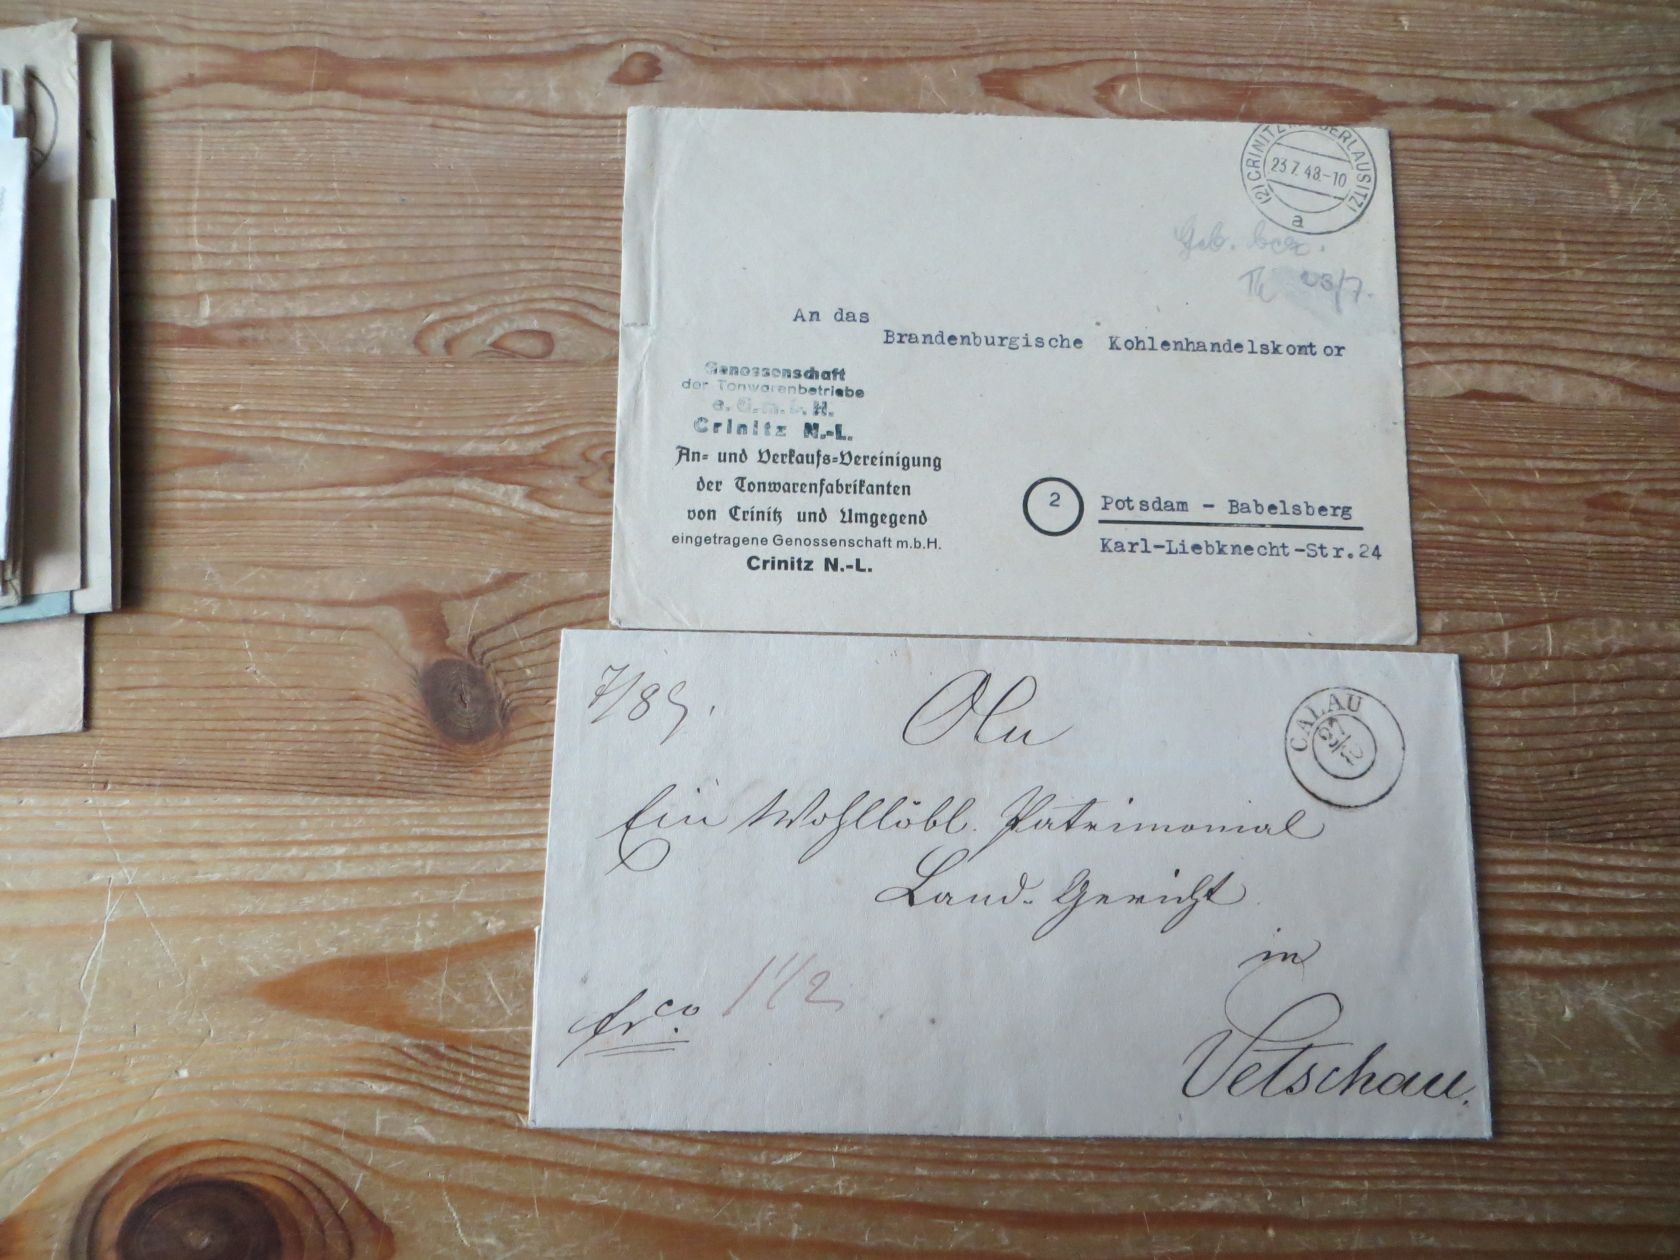 (2) CRINITZ (NIEDERLAUSITZ)
23.7.48.-10
a
Geb. bez.
23/7.
An das
Brandenburgische Kohlenhandelskontor
Genossenschaft
der Tonwarenbetriebe
e. G. m. b. H.
Crinitz N.-L.
An- und Verkaufs-Vereinigung
der Tonwarenfabrikanten
von Crinitz und Umgegend
eingetragene Genossenschaft m.b.H.
Crinitz N.-L.
2
Potsdam - Babelsberg
Karl-Liebknecht-Str.24
An
CALAU
Ein Wohllöbl. Patrimonial
Land-Gericht
in
frco. 1 1/2
Vetschau.